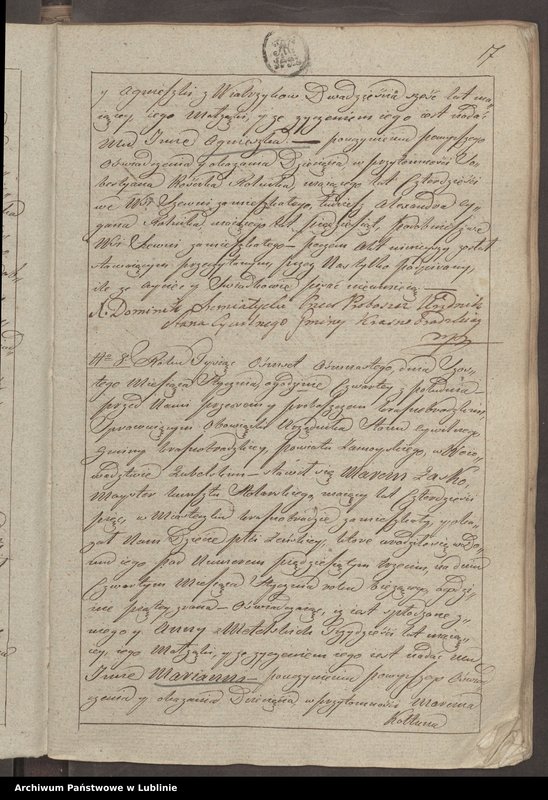 17
y Agnieszki z Wiatrzykow Dwadzieścia sześć lat ma„
iącey iego Małżonki, y że życzeniem iego iest nadać
Mu Imie Agnieszka — pouczynieniu powyższego
Oświadczenia y okazania Dziecięcia w przytomności Se„
bestyana maiącego lat Czterdzieści
we Wsi zamieszkałego, tudzież Alexandra
maiącego lat pięćdziesiąt, podobnież we
Wsi zamieszkałego — poczem Akt ninieyszy został
Stawaiącym przeczytanym, przez Nas tylko podpisany,
ile że Oyciec y Świadkowie pisać nieumieią —
X. Dominik Siemiatycki Pred Proboszcz Urzędnik
Stanu Cywilnego Gminy Krasnobrodzkiey
mp
Nro 8. Roku Tysiąc Osmset Osmnastego, dnia
tego Miesiąca Stycznia o godzinie Czwartey z południa —
przed Nami Proboszczem Krasnobrodzkim
Sprawuiącym Obowiązki Urzędnika Stanu Cywilnego
Gminy Krasnobrodzkiey powiatu Zamoyskiego, w Woie„
wodztwie Lubelskim — stawił się Marcin Łasko,
Mayster kunsztu maiący lat Czterdzieści
w Miasteczku Krasnobrodzie zamieszkały, y oka„
zał Nam Dziecie płci Żeńskiey, które urodziło się w Do„
mu iego pod Numerem pięćdziesiątym trzecim, na dniu
Czwartym Miesiąca Stycznia roku bieżącego, o godzi„
nie piątey zrana — Oświadczaiąc, iż iest spłodzone z
niego y Anny z lat maią„
cey, iego Małżonki, y że życzeniem iego iest nadać mu
Imie Maryanna — poczynieniu powyższego Oświad„
czenia y okazania Dziecięcia w przytomności Marcina
Kołtuna
Archiwum Państwowe w Lublinie